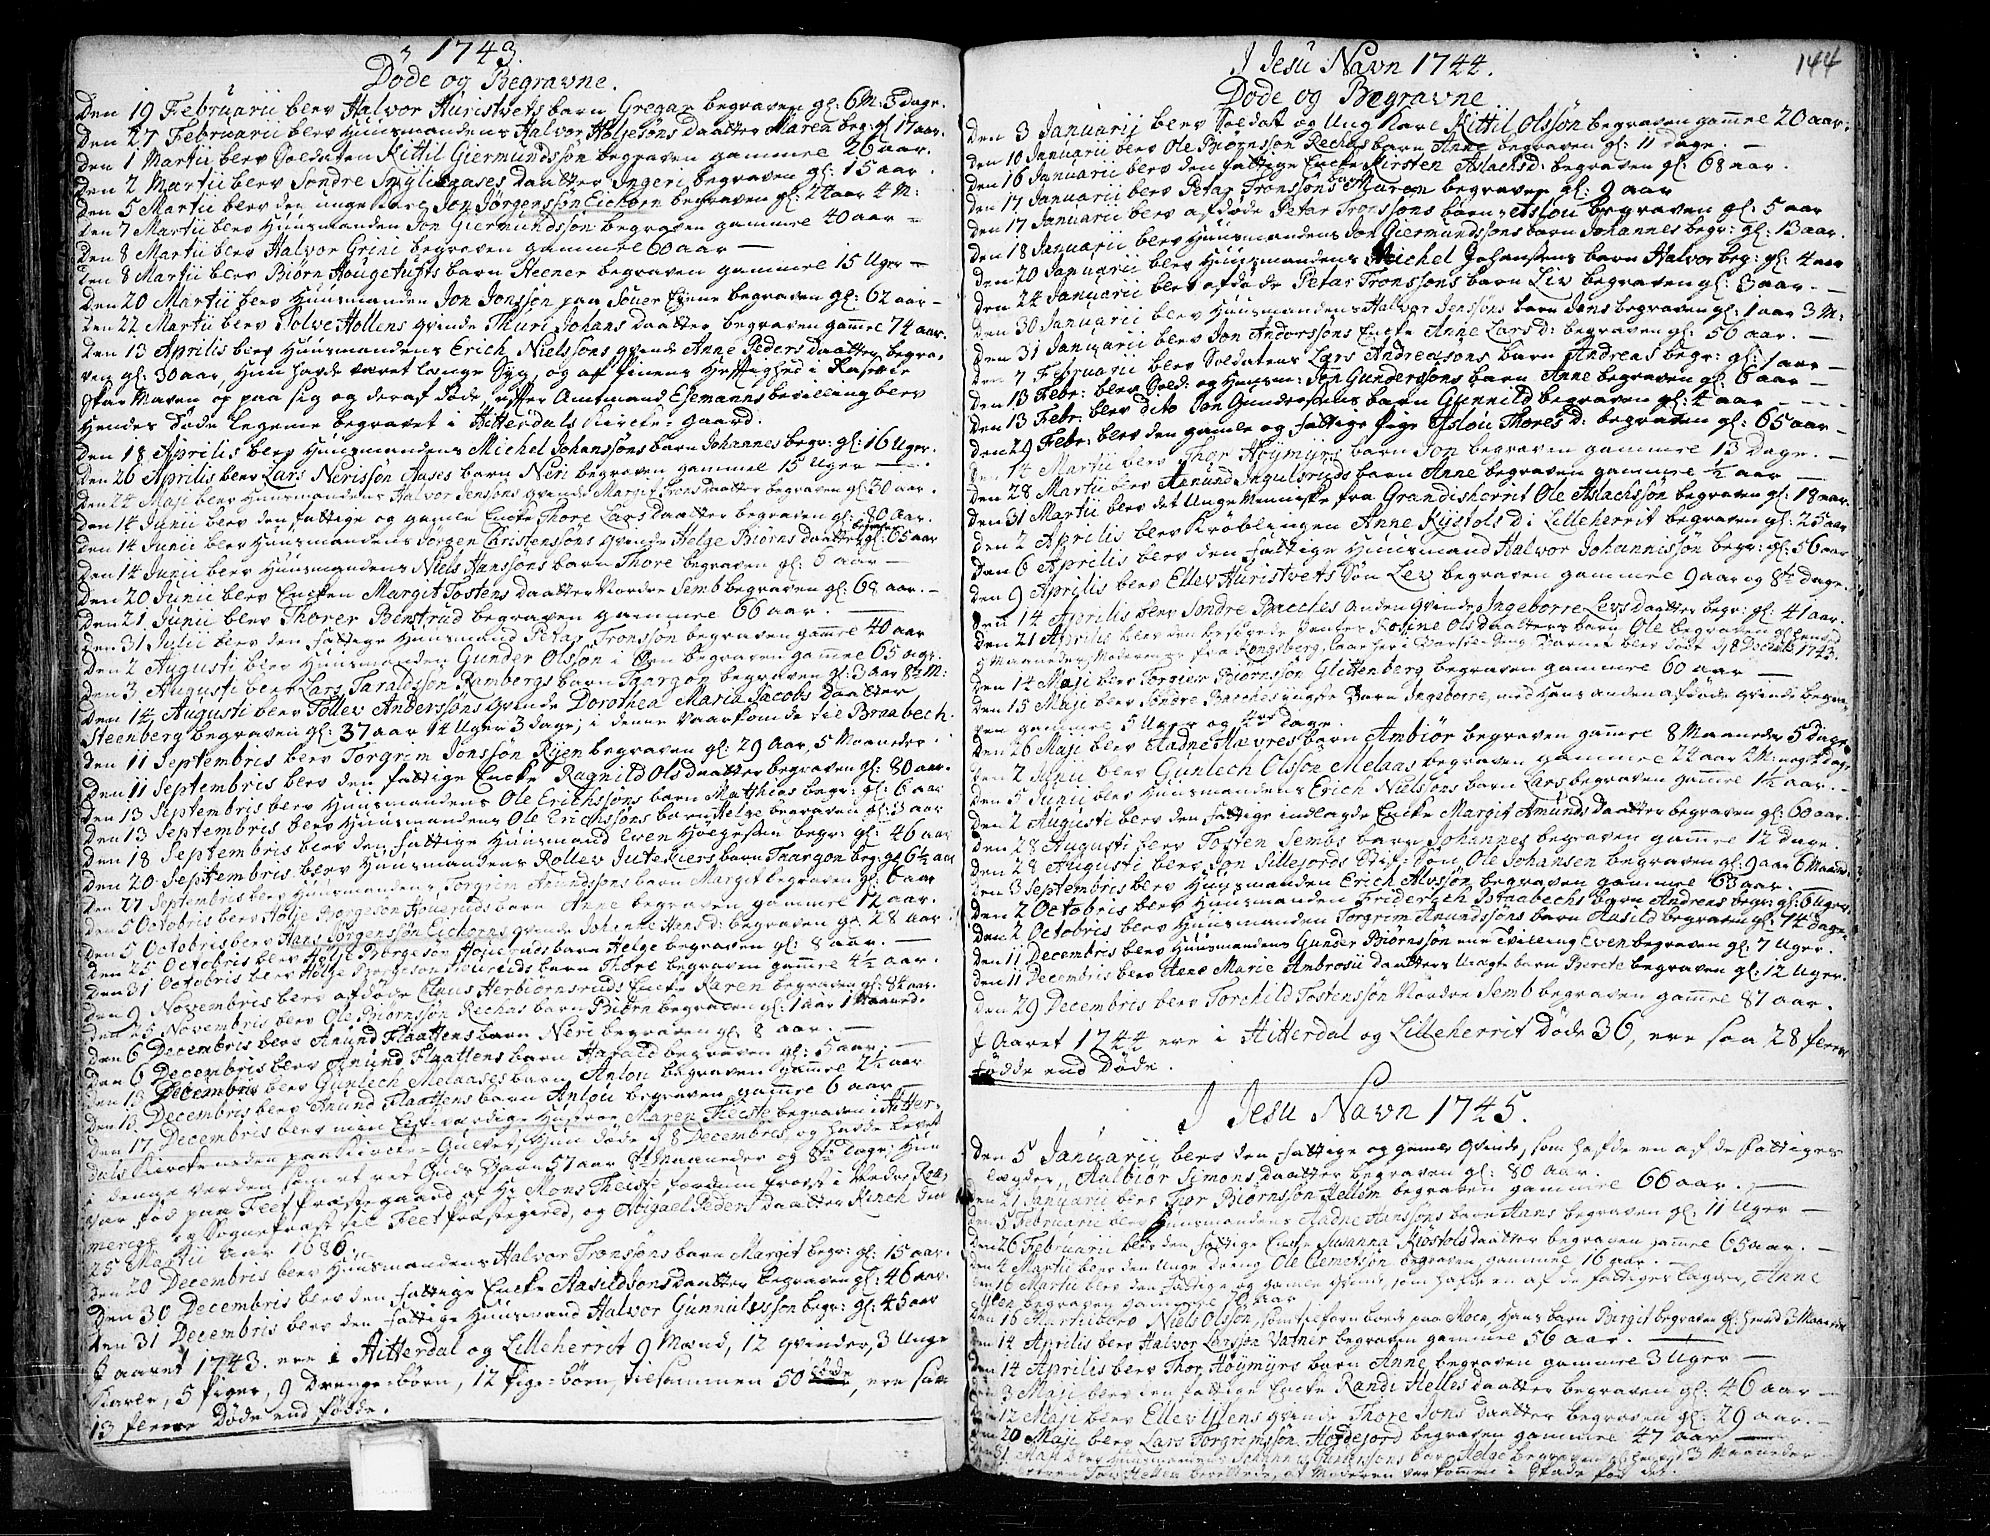 1743.
Døde og Begravne.
Den 19 Februarii blev Halvor Hüristvets barn Gregar begraven gl: 6 M: 3 dage.
Den 27 Februarii blev Huusmandens Halvor Holjesøns daatter Maren beg: gl 17 aar.
Den 1 Martii blev Soldaten Kittil Giermundssøn begraven gammre 26 aar.
Den 2 Martii blev Sondre daatter Ingeri begraven gl: 15 aar.
Den 5 Martii blev den unge Karl Jon Jørgenssøn Eichorn begraven gl: 24 aar 4 M:
Den 7 Martii blev Huusmanden Jon Giermundssøn begraven gammre 40 aar
Den 8 Martii blev Halvor Grini begraven gammre 60 aar
Den 8 Martii blev Biørn Hougetufts barn Steener begraven gammre 15 Uger
Den 20 Martii blev Huusmanden Jon Jonssøn paa Souer Eiene begraven gl: 62 aar
Den 22 Martii blev Solve Hollens qvinde Thuri Johans daatter begraven gamre 74 aar.
Den 13 Aprilis blev Huusmandens Erich Nielssøns qvinde Anne Peders daatter begra-
ven gl: 30 aar, Hun havde været lenge Syg, og af Pinens Heftighed i Raserie
skar Maven op paa sig og deraf døde, efter Amtmand Esemanns bevilling blev
Hendes Døde Legeme begravet i Hitterdals Kircke-gaard.
Den 18 Aprilis blev Huusmandens Michel Johanssøns barn Johannes begr: gl: 16 Uger.
Den 26 Aprilis blev Lars Nerissøn Aases barn Neri begraven gammel 15 Uger
Den 24 Maji blev Huusmandens Halvor Jenssøns qvinde Margit Trons daatter begraven gl: 30 aar.
Den 14 Junii blev den fattige og gamle Encke Thore Lars daatter begraven gl: 80 aar.
Den 14 Junii blev Huusmandens Jørgen Christenssøns qvinde Helge Biørns daatter begraven gl: 65 aar
Den 14 Junii blev Huusmandens Niels Hanssøns barn Thore begraven gl: 5 aar
Den 20 Junii blev Encken Margit Tostens daatter Nordre Semb begraven gl: 68 aar.
Den 21 Junii blev Thorer Binstrud begraven gammre 66 aar.
Den 31 Julii blev den fattige Huusmand Petar Tronssøn begraven gamre 40 aar
Den 2 Augusti blev Huusmanden Gunder Olssøn i begraven gamre 65 aar.
Den 3 Augusti blev Lars Taraldssøn Rambergs barn Targon begraven gl: 3 aar 8½ M:
Den 14 Augusti blev Tollev Anderssøns qvinde Dorothea Maria Jacobs daatter
Steenberg begraven gl: 37 aar 14 Uger 3 dage; i denne Vaar komde til Braabech.
Den 11 Septembris blev Torgrim Jonssøn Rijen begraven gl: 29 Aar, 5 Maaneder.
Den 11 Septembris blev den fattige Encke Ragnild Ols daatter begraven gl: 80 aar.
Den 13 Septembris blev Huusmandens Ole Erichssøns barn Matthias begr: gl: 6 aar
Den 13 Septembris blev Huusmandens Ole Erichssøns barn Helge begraven gl: 3 aar
Den 18 Septembris blev den fattige Huusmand Even begr: gl: 46 aar
Den 20 Septembris blev Huusmandens Rollev barn Targon beg: gl 6½ aar
Den 27 Septembris blev Huusmandens Torgrim Anundssøns barn Margit begraven gl: 6 aar
Den 5 Octobris blev Holje Børgesøn Houeruds barn Anne begraven gammre 12 aar.
Den 5 Octobris blev Hans Jørgenssøn Eichorns qvinde Johanne Hans d: begraven gl 28 aar
Den 25 Octobris blev Holje Børgesøn Houeruds barn Helge begraven gl: 8 aar.
Den 31 Octobris blev Holje Børgesøn Houeruds barn Thore begraven gamre 4½ aar.
Den 9 Novembris blev afdøde Claus Herbiørnsruds Encke Karen begraven gl: 84 aar.
Den 25 Novembris blev Ole Biørnssøn Rechas barn Biørn begraven gl: 1 aar 1 Maaned.
Den 6 Decembris blev Anund Flaattens barn Neri begraven gl: 8 aar.
Den 6 Decembris blev Anund Flaattens barn Harald begraven gl: 5 aar.
Den 13 Decembris blev Gunlech Melaases barn Anlou begraven gamre 2½ aar
Den 13 Decembris blev Anund Flaattens barn Anlou begraven gamre 6 aar
Den 17 Decembris blev min Elskværdige Hustrue Maren Theiste begraven i Hitter-
dals Kircke neden paa Kircke-Gulvet, Hun døde d 8 Decembris, og havde levet
i denne verden som et ret Guds Barn 57 aar 8½ Maaneder og 8te dage; Hun
var fød paa Feet præstegaard af Hr Mons Theiste, fordum Provst i Nedre Rom-
merige og Sognepræst til Feet præstegield, og Abigael Peders daatter Kinch den
25 Martii aar 1686.
Den 20 Decembris blev Huusmandens Halvor Tronssøns barn Margit begr: gl: 15 aar.
Den 30 Decembris blev den fattige Encke Aasild Jons daatter begraven gl: 46 aar.
Den 31 Decembris blev den fattige Huusmand Halvor Gunnulvssøn begr: gl: 45 aar
I aaret 1743. ere i Hitterdal og Lilleherrit 9 Mænd, 12 qvinder, 3 Unge
Karle, 5 piger, 9 Drenge-børn, 12 pige-børn, tilsammen 50 døde, ere saa
13 fleere Døde end fødde.
144
I Jesu Navn 1744.
Døde og Begravne
Den 3 Januarij blev Soldat og Ung Karl Kittil Olssøn begraven gamre 20 aar.
Den 10 Januarii blev Ole Biørnssøn Rechas barn Anne begraven gl: 11 dage.
Den 16 Januarii blev den fattige Encke Kirsten Aslachs d: begraven gl: 68 aar.
Den 17 Januarii blev Petar Tronssøns barn Maren begraven gl: 9 aar
Den 17 Januarii blev afdøde Petar Tronssøns barn Aslou begraven gl: 5 aar
Den 18 Januarii blev Huusmandens Jon Giermundssøns barn Johannes begr: gl: 13 aar.
Den 20 Januarii blev Huusmandens Michel Johansens barn Halvor beg: gl: 4 aar
Den 24 Januarii blev afdøde Petar Tronssøns barn Liv begraven gl: 3 aar.
Den 30 Januarii blev Huusmandens Halvor Jenssøns barn Jens begraven gl: 1 aar 3 M:
Den 31 Januarii blev Jon Anderssøns Encke Anne Lars d: begraven gl: 56 aar.
Den 7 Februarii blev Soldatens Lars Andreasøns barn Andreas begr: gl: 1 aar
Den 13 Febr: blev Sold: og Huusm: Jon Gunderssøns barn Anne begraven gl: 6 aar
Den 13 Febr: blev dito Jon Gunderssøns barn Gunnild begraven gl: 4 aar
Den 29 Febr: blev den gamle og fattige pige Aslou Thores d: begraven gl: 65 aar
Den 14 Martii blev Thor Høymyrs barn Jon begraven gammre 13 Dage.
Den 28 Martii blev Anund Ingulsruds barn Anne begraven gammre ½ aar
Den 31 Martii blev det Unge Menniske fra Grandsherrit Ole Aslachssøn begraven gl: 18 aar.
Den 2 Aprilis blev Krøblingen Anne Kistols d i Lilleherrit begraven gl: 25 aar
Den 6 Aprilis blev den fattige Huusmand Halvor Johannissøn begr: gl: 56 aar
Den 9 Aprilis blev Ellev Hüristvets Søn Lev begraven gammre 9 aar og 8te dage.
Den 14 Aprilis blev Sondre Bacches anden qvinde Ingeborre Levs daatter begr: gl: 41 aar.
Den 21 Aprilis blev den besovede Jentes Rosine Ols daatters barn Ole begraven gl: henved
5 Maaneder, Moderen er fra Kongsberg, Barnet blev døbt d 18 Decemb: 1743.
Den 14 Maji blev Torgier Biørnssøn Glittenberg begraven gammre 60 aar
Den 15 Maji blev Sondre Bacches yngste Barn Ingeborre, med Hans anden afdøde qvinde begra-
ven gammre 5 Uger og 4re dage.
Den 26 Maji blev Aadne Hævres barn Ambiør begraven gamre 8 Maaneder 5 dage
Den 2 Junii blev Gunlech Olssøn Melaas begraven gammre 24 aar 2 M: og 2 dage
Den 5 Junii blev Huusmandens Erich Nielssøns barn Lars begraven gamre 1½ aar.
Den 2 Augusti blev den fattige indlagde Encke Margit Amunds daatter begraven gl: 60 aar.
Den 28 Augusti blev Tosten Sembs barn Johannes begraven gamre 12 dage.
Den 28 Augusti blev Jon Sillejords Stif-Søn Ole Johansen begraven gl 9 aar 6 Maaned
Den 3 Septembris blev Huusmanden Erich Alvssøn begraven gammre 63 aar.
Den 2 Octobris blev Huusmanden Friderich Braabechs Barn Andreas begr: gl: 6 Uger.
Den 2 Octobris blev Huusmanden Torgrim Anundssøns barn Aasild begraven gl: 14 dage
Den 11 Decembris blev Huusmandens Gunder Biørnssøn ene Tvilling Even begraven gl: 7 Uger.
Den 11 Decembris blev Anne Marie Ambrosii daatters Uægte barn Berete begraven gl: 12 Uger.
Den 29 Decembris blev Torchild Tostenssøn Nordre Semb begraven gamre 87 aar.
I Aaret 1744 ere i Hitterdal og Lilleherrit Døde 36, ere saa 28 fleere
fødde end Døde.
I Jesu Navn 1745.
Den 5 Januarii blev den fattige og gamle qvinde, som hafde en af de fattiges
lægder, Aalbiør Simons daatter begraven gl: 80 aar.
Den 21 Januarii blev Thor Biørnssøn Hellem begraven gammre 66 aar.
Den 5 Februarii blev Huusmandens Aadne Aanssøns barn Aans begraven gl: 11 Uger
Den 26 Februarii blev den fattige Encke Susanna Kiøstols daatter begraven gamre 65 aar.
Den 4 Martii blev den Unge dreng Ole Clemetssøn begraven gammre 16 aar.
Den 16 Martii blev den fattige og gamle qvinde, som hafde en af de fattiges Lægder, Anne
begraven gammre 70 aar
Den 16 Martii blev Niels Olssøn, som tilforn boede paa Moen, Hans barn Birgit begraven gl: henved 3 Maaneder
Den 14 Aprilis blev Halvor Larssøn Vatner begraven gammre 56 aar.
Den 14 Aprilis blev Thor Høymyrs barn Anne begraven gammre 3 Uger
Den 3 Maji blev den fattige Encke Randi Helles daatter begraven gl: 46 aar
Den 12 Maji blev Ellev qvinde Thore Jons daatter begraven gl: 29 aar.
Den 20 Maji blev Lars Torgrimssøn Hogdejord begraven gammre 47 aar
Den 31 Maji blev Huusmandens Johannes Gunderssøns barn Helge begraven gl: henved 3 Maaneder
berettede, at Moderen var kommen i Skade for det.